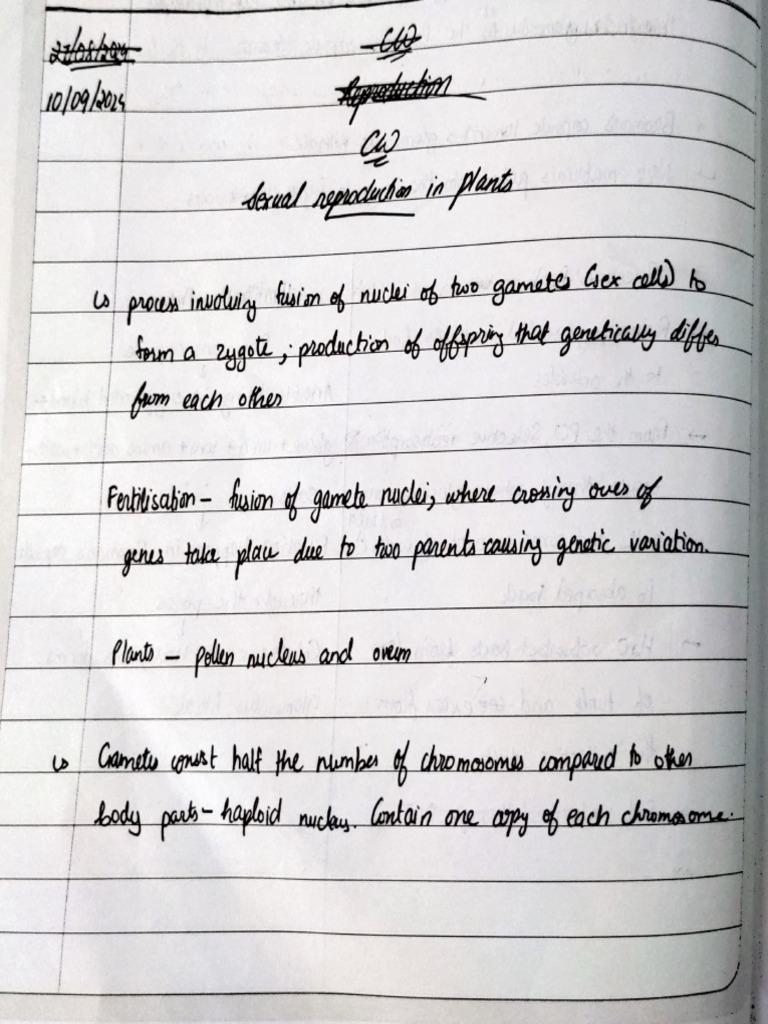 27/08/2024
CW
10/09/2024
Reproduction
CW
Sexual reproduction in plants
↳ process involving fusion of nuclei of two gametes (sex cells) to
form a zygote; production of offspring that genetically differ
from each other
Fertilisation – fusion of gamete nuclei, where crossing over of
genes take place due to two parents causing genetic variation.
Plants – pollen nucleus and ovum
↳ Gametes consist half the number of chromosomes compared to other
body parts – haploid nucleus. Contain one copy of each chromosome.